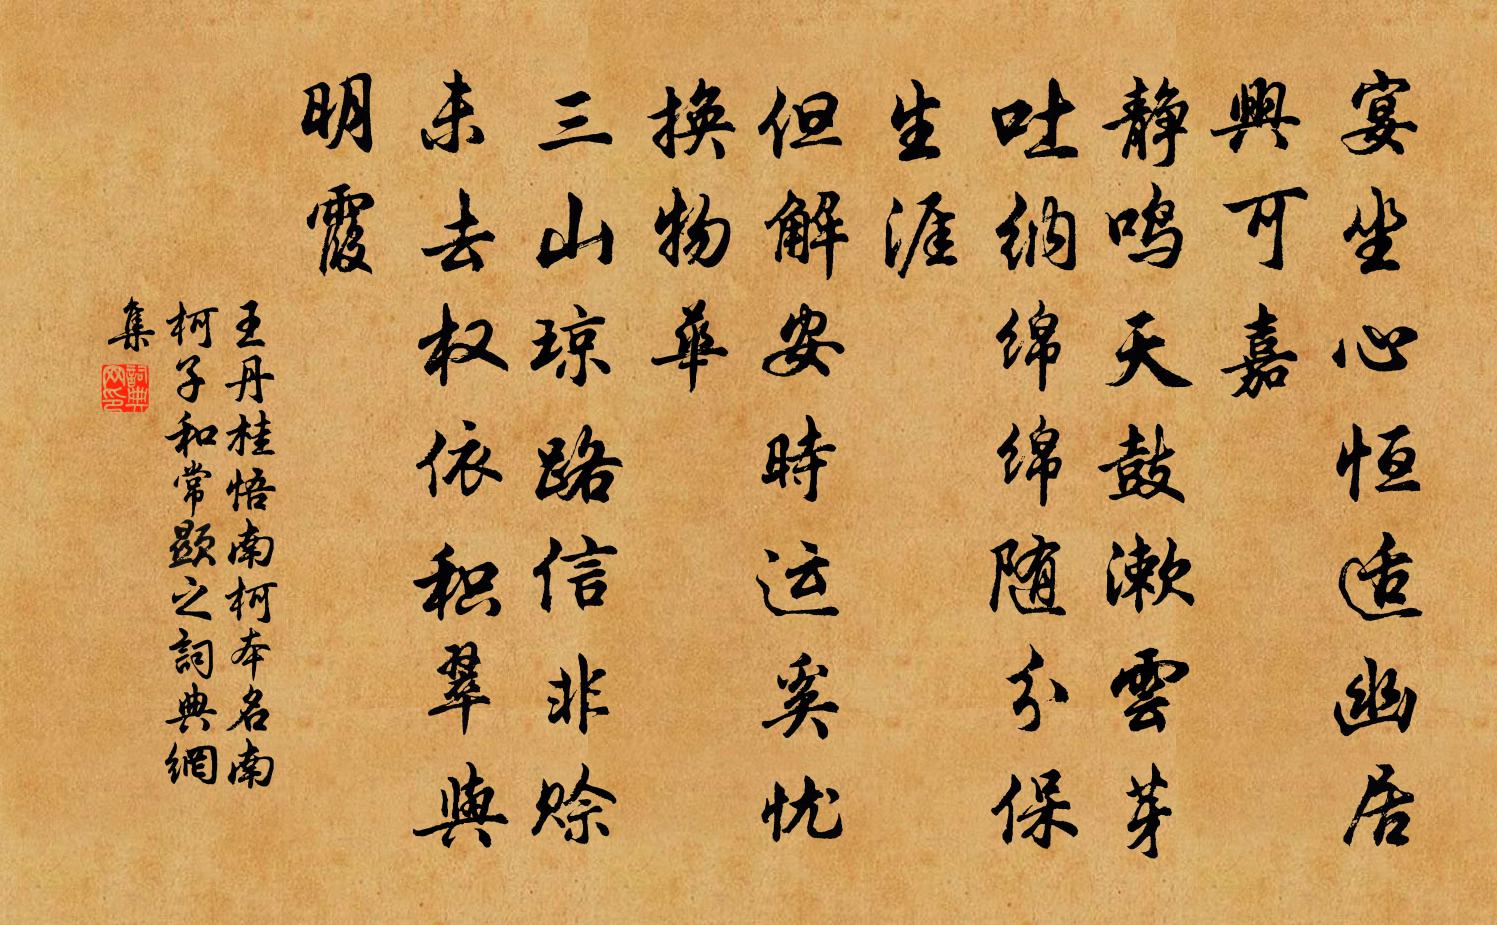 宴坐心恒适幽居
興可嘉
静鸣天鼓漱雲芽
吐纳绵绵随分保
生涯
但解安時运奚忧
换物華
三山琼路信非赊
未去权依积翠與
明霞
王丹桂悟南柯本名南
柯子和常顯之詞典網
集
詞典
网印